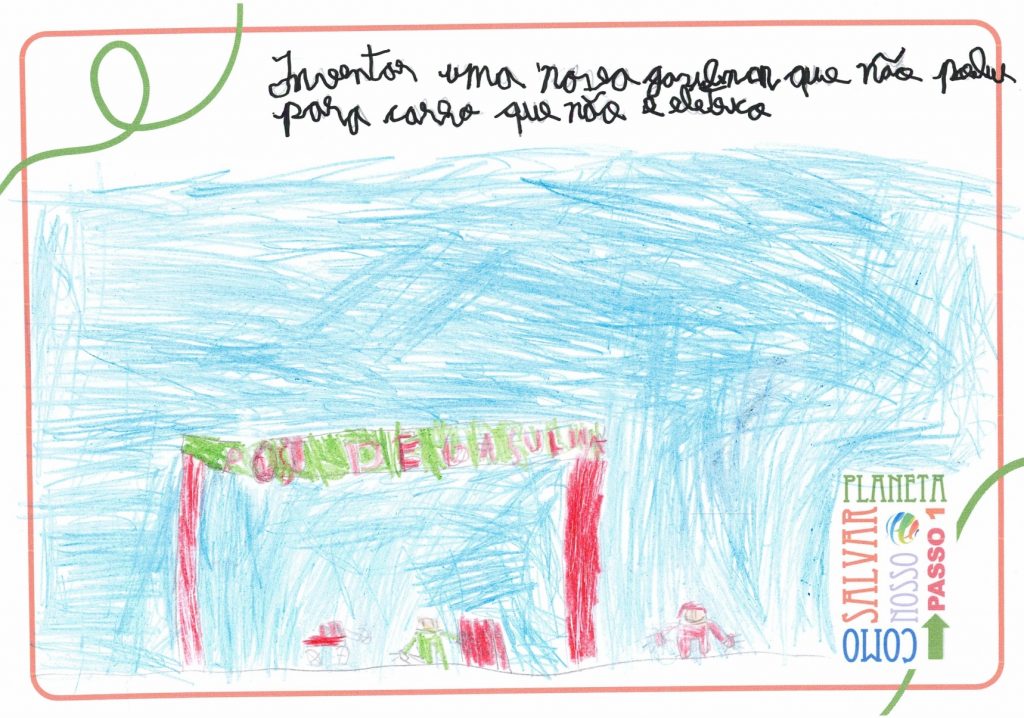 Inventar uma nova que não polui
para carro que não é
DE GASULINA
COMO
SALVAR
NOSSO
PLANETA
PASSO 1